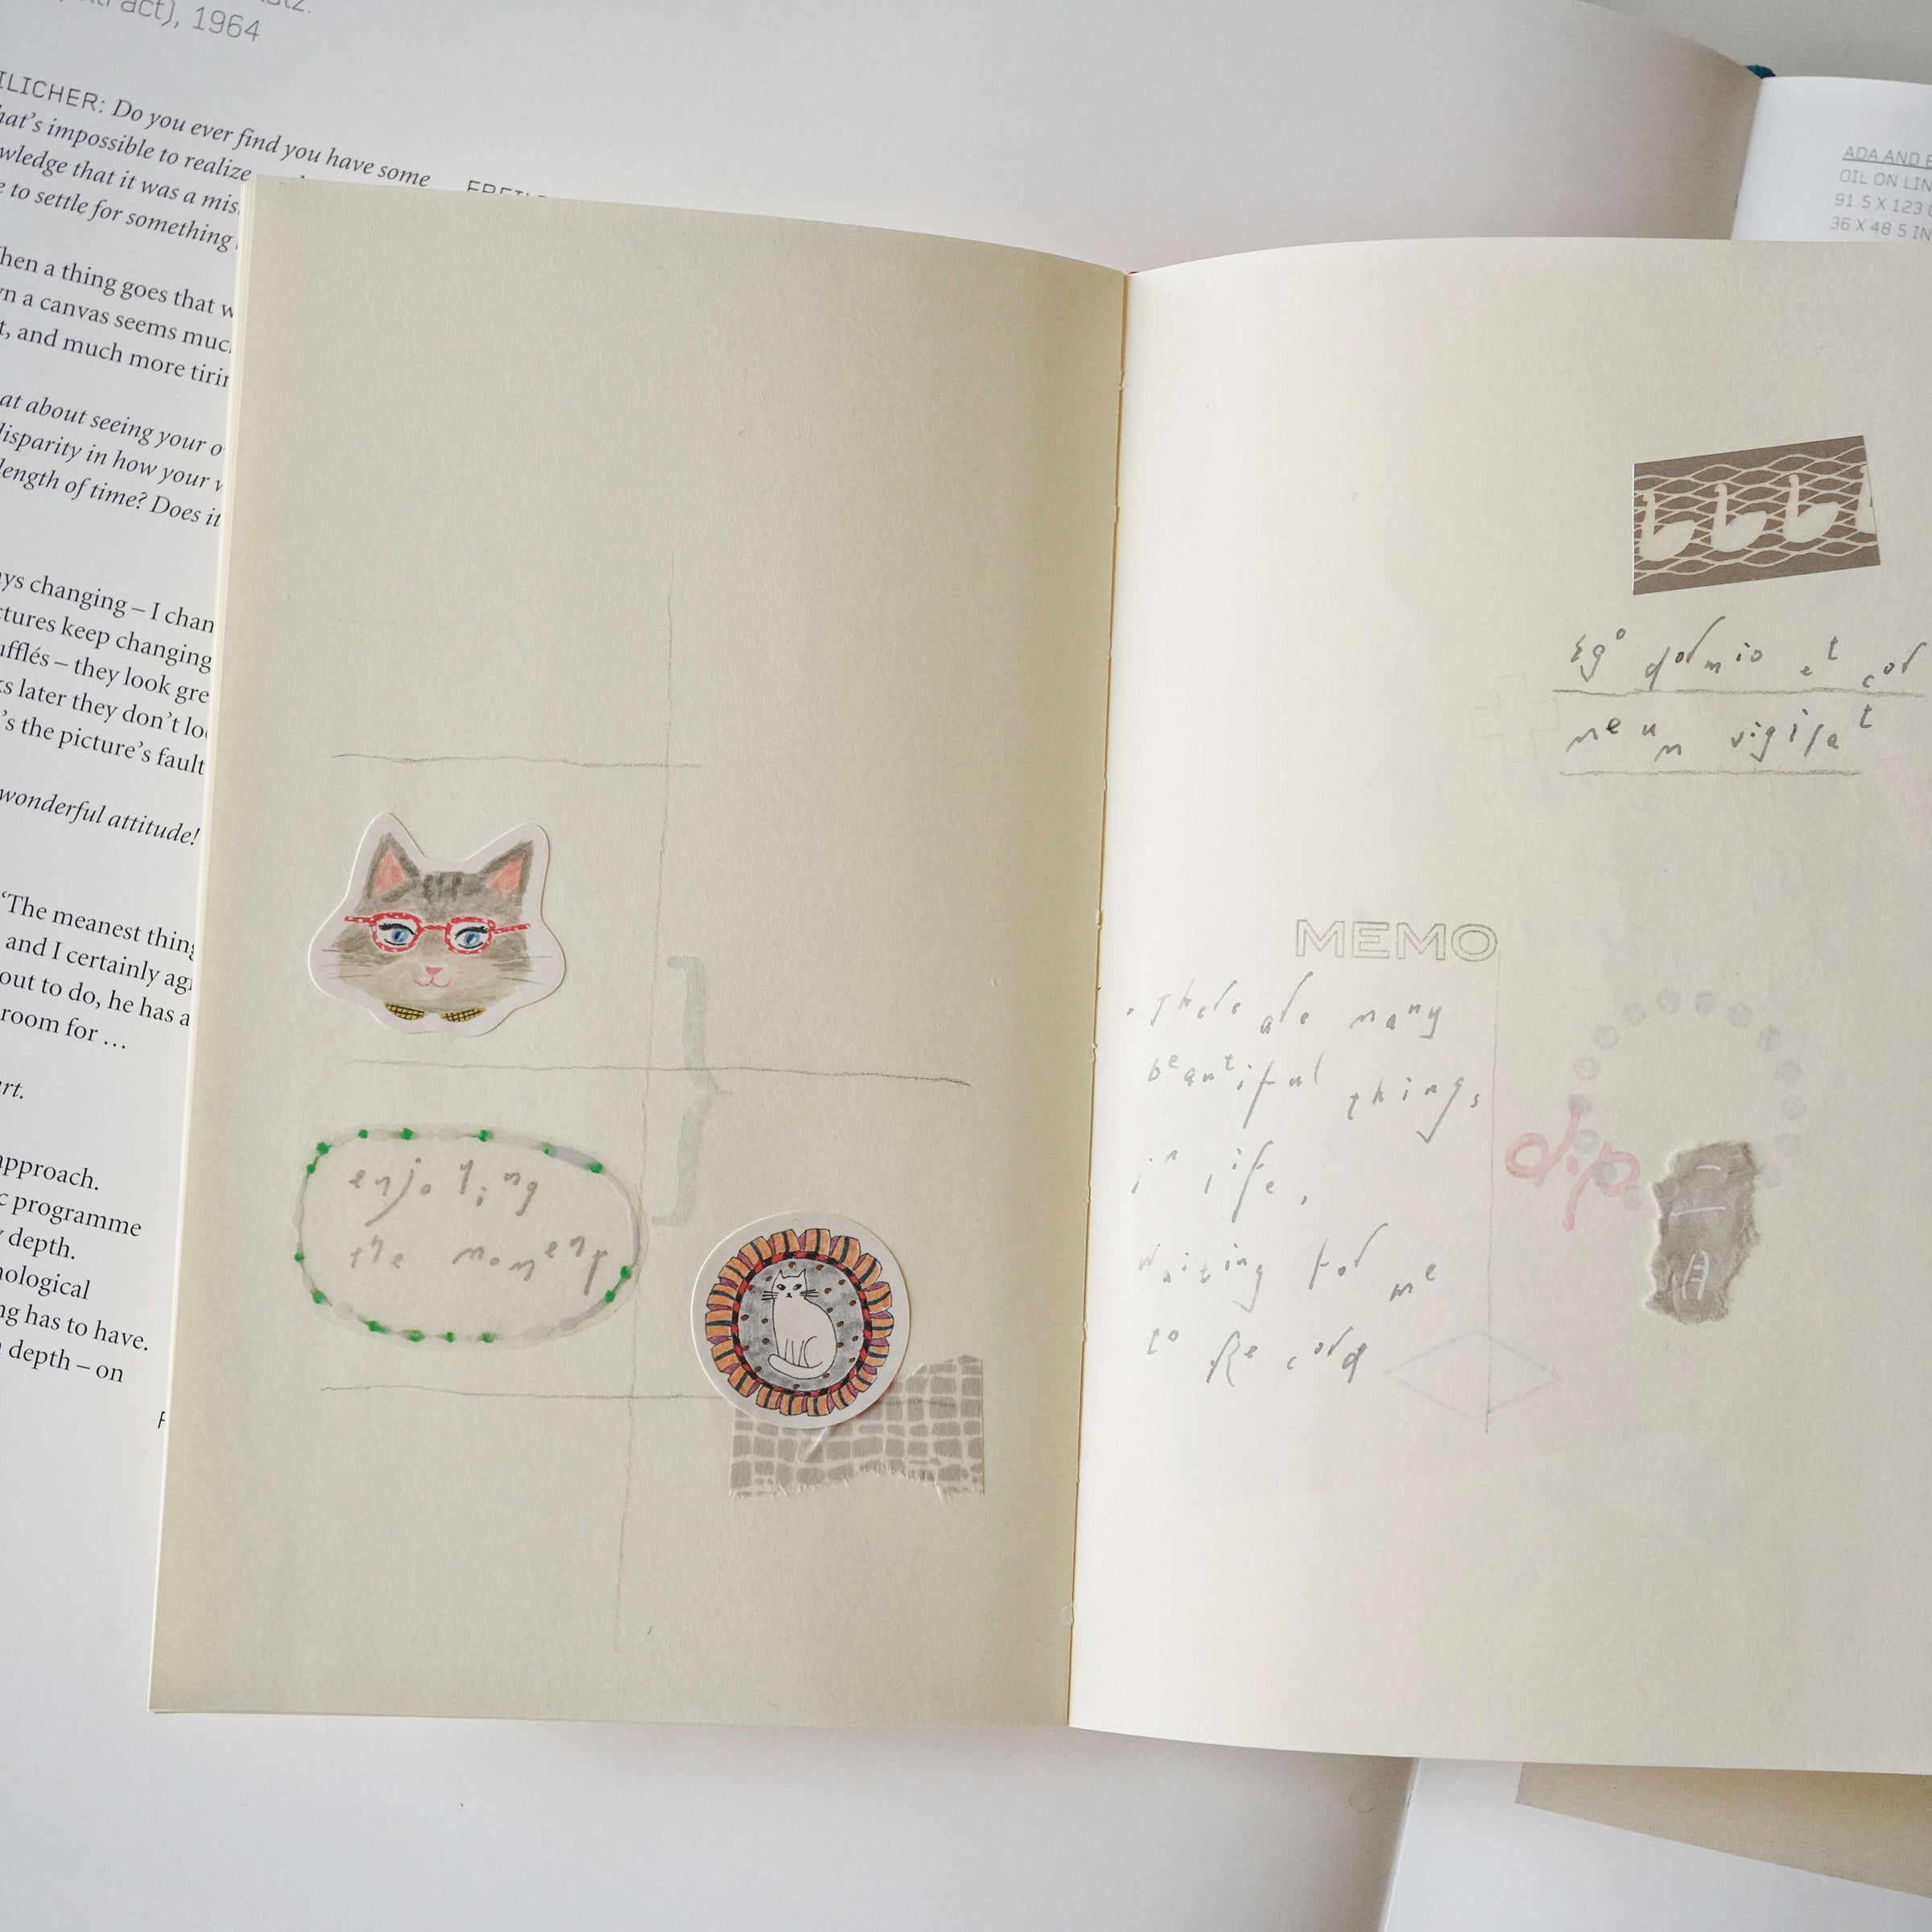 ract), 1964
ILICHER: Do you ever find you have some
hat's impossible to realize
wledge that it was a mis
e to settle for something
hen a thing goes that w
n a canvas seems muc
t, and much more tirin
at about seeing your o
disparity in how your v
length of time? Does it
ys changing – I chan
ctures keep changing
ufflés – they look gre
s later they don't lo
's the picture's fault
wonderful attitude!
'The meanest thing
and I certainly ag
out to do, he has a
room for ...
rt.
approach.
c programme
y depth.
nological
ng has to have.
n depth – on
enjoying
the moment
ADA AND E
OIL ON LIN
91 5 X 123
36 X 48 5 IN
Ego dormio et cor
meum vigilat
MEMO
. There are many
beautiful things
in life,
waiting for me
to Record
dip